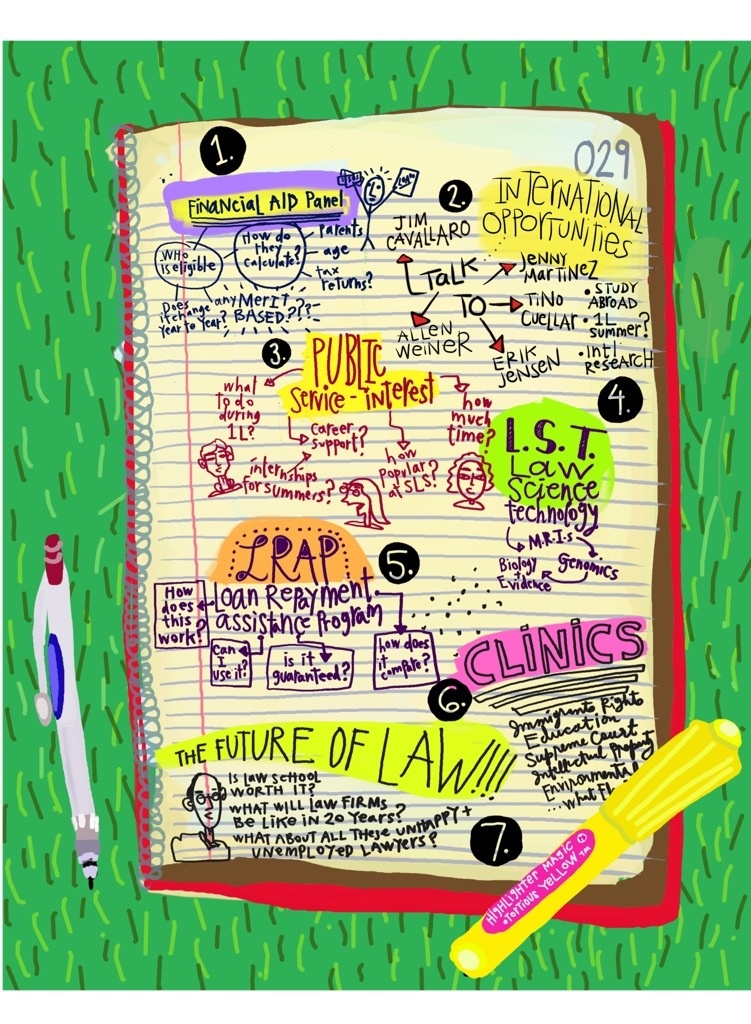 029
1.
Financial Aid Panel
Who
is eligible
How do
they
calculate?
parents
age
tax
returns?
Does
it change
year to year?
any Merit
BASED???
2.
INTERNATIONAL
OPPORTUNITIES
TALK
TO
JIM
CAVALLARO
JENNY
MARTINEZ
TINO
CUELLAR
ERIK
JENSEN
ALLEN
WEINER
• STUDY
ABROAD
• 1L
Summer?
• Int'l
RESEARCH
3.
PUBLIC
Service-interest
what
to do
during
1L?
career
support?
internships
for summers?
how
popular
at SLS?
how
much
time?
4.
L.S.T.
Law
Science
technology
M.R.I.s
Genomics
Biology
+
Evidence
5.
LRAP
Loan Repayment
assistance Program
How
does
this
work?
can
I
use it?
is it
guaranteed?
how does
it compare?
6.
CLINICS
Immigrants Rights
Education
Supreme Court
Intellectual Property
Environmental
...what
7.
THE FUTURE OF LAW!!!
IS LAW SCHOOL
WORTH IT?
WHAT WILL LAW FIRMS
BE LIKE IN 20 YEARS?
WHAT ABOUT ALL THESE UNHAPPY +
UNEMPLOYED LAWYERS?
HIGHLIGHTER MAGIC
•TORTIOUS YELLOW™